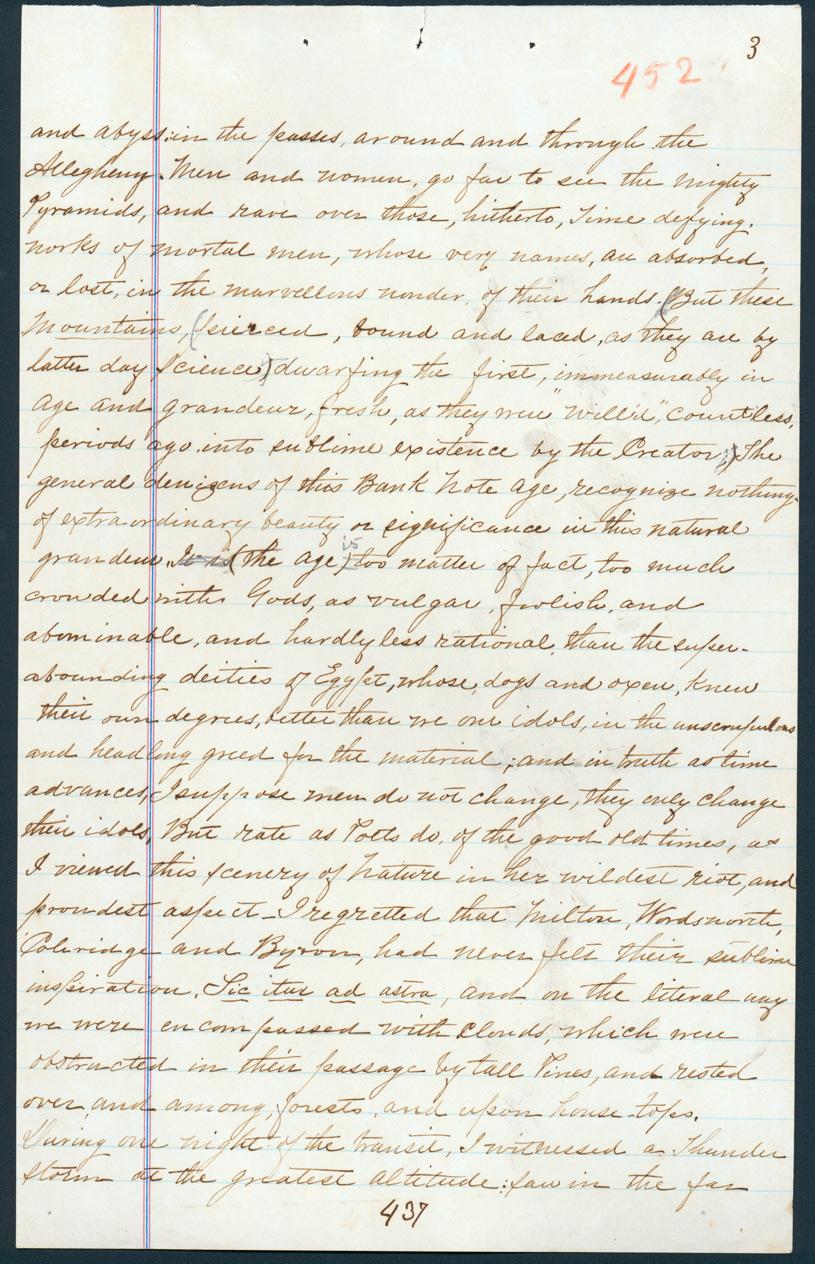 3
452
and abyss: in the passes, around and through the
Allegheny. Men and women, go far to see the mighty
Pyramids, and rave over those, hitherto, Time defying.
works of mortal men, whose very names, are absorbed,
or lost, in the marvellous wonder, of their hands. (But these
Mountains, (pierced, bound and laced, as they are by
latter day Science) dwarfing the first, immeasurably in
age and grandeur, fresh, as they were "Will'd", countless,
periods ago. into sublime existence by the Creator;) The
general denizens of this Bank Note age, recognize nothing
of extraordinary beauty or significance in this natural
grandeur. It is (the age) is too matter of fact, too much
crowded with Gods, as vulgar, foolish, and
abominable, and hardly less rational, than the super-
abounding deities of Egypt, whose, dogs and oxen, knew
their own degrees, better than we our idols, in the unscrupulous
and headlong greed for the material; and in truth as time
advances, I suppose men do not change, they only change
their idols, But rate as Poets do, of the good old times, as
I viewed this scenery of Nature in her wildest riot, and
proudest aspect - I regretted that Milton, Wordsworth,
Coleridge and Byron, had never felt their sublime
inspiration. Sic itur ad astra, and on the literal way
we were encompassed with Clouds, which were
obstructed in their passage by tall Pines, and rested
over, and among, forests, and upon house-tops.
During one night of the transit, I witnessed a Thunder
storm at the greatest altitude: saw in the far
437